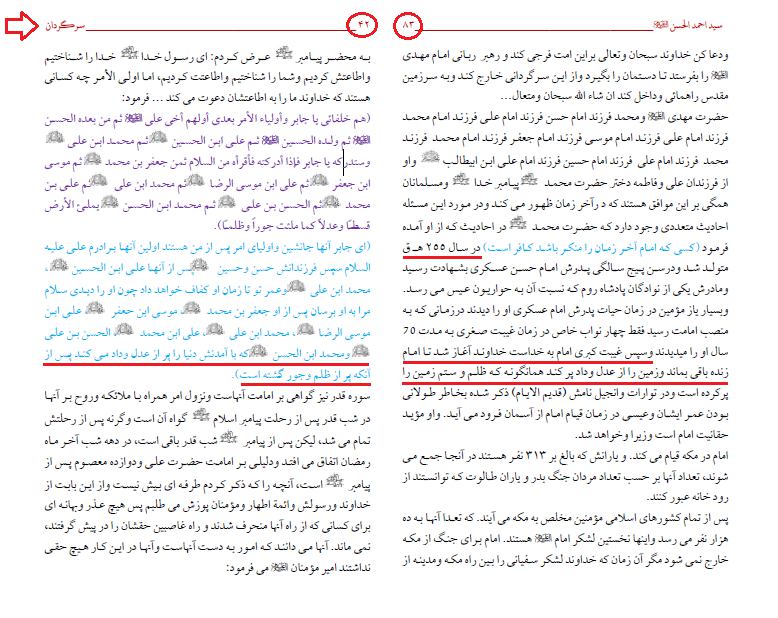 سید احمد الحسن ۸۳
ودعا کن خداوند سبحان وتعالی براین امت فرجی کند و رهبر ربانی امام مهدی
را بفرستد تا دستمان را بگیرد واز این سرگردانی خارج کند وبه سرزمین
مقدس راهمائی وداخل کند ان شاء الله سبحان ومتعال...
حضرت مهدی ومحمد فرزند امام حسن فرزند امام علی فرزند امام محمد
فرزند امام علی فرزند امام موسی فرزند امام جعفر فرزند امام محمد فرزند
محمد فرزند امام علی فرزند امام حسین فرزند امام علی ابن ابیطالب واو
از فرزندان علی وفاطمه دختر حضرت محمد پیامبر خدا ومسلمانان
همگی بر این موافق هستند که درآخر زمان ظهور می کند ودر مورد این مسئله
احادیث متعددی وجود دارد که حضرت محمد در احادیث که از او آمده
فرمود (کسی که امام آخر زمان را منکر باشد کافر است) در سال ۲۵۵ هـ ق
متولد شد ودرسن پنج سالگی پدرش امام حسن عسکری بشهادت رسید
ومادرش یکی از نوادگان پادشاه روم که نسبت آن به حواریون عیس می رسد.
وبسیار یاز مؤمین در زمان حیات پدرش امام عسکری او را دیدند درزمانی که به
منصب امامت رسید فقط چهار نواب خاص در زمان غیبت صغری به مدت 70
سال او را میدیدند وسپس غیبت کبری امام به خداست خداوند آغاز شد تا امام
زنده باقی بماند وزمین را از عدل وداد پر کند همانگونه که ظلم و ستم زمین را
پرکرده است ودر توارات وانجیل نامش (قدیم الایام) ذکر شده بخاطر طولانی
بودن عمر ایشان وعیسی در زمان قیام امام از آسمان فرود می آید. واو مؤید
حقانیت امام است وزیرا وخواهد شد.
امام در مکه قیام می کند. و یارانش که بالغ بر ۳۱۳ نفر هستند در آنجا جمع می
شوند، تعداد آنها بر حسب تعداد مردان جنگ بدر و یاران طالوت که توانستند از
رود خانه عبور کنند.
پس از تمام کشورهای اسلامی مؤمنین مخلص به مکه می آیند. که تعدا آنها به ده
هزار نفر می رسد واینها نخستین لشکر امام هستند. امام برای جنگ از مکه
خارج نمی شود مگر آن زمان که خداوند لشکر سفیانی را بین راه مکه ومدینه از
۴۲ سرگردان
به محضر پیامبر عرض کردم: ای رسول خدا خدا را شناختیم
واطاعتش کردیم وشما را شناختیم واطاعت کردیم، اما اولی الأمر چه کسانی
هستند که خداوند ما را به اطاعتشان دعوت می کند ... فرمود:
(هم خلفائی یا جابر و أولیاء الأمر بعدی أولهم أخی علی ثم من بعده الحسن
ثم ولده الحسین ثم علی ابن الحسین ثم محمد ابن علی
وستدرکه یا جابر فإذا أدرکته فأقرأه من السلام ثمن جعفر بن محمد ثم موسی
ابن جعفر ثم علی ابن موسی الرضا ثم محمد ابن علی ثم علی بن
محمد ثم الحسن بن علی ثم محمد ابن الحسن یملئ الأرض
قسطاً وعدلاً کما ملئت جوراً وظلماً).
(ای جابر آنها جانشین واولیای امر پس از من هستند اولین آنها برادرم علی علیه
السلام سپس فرزندانش حسن وحسین پس از آنها علی ابن الحسین ،
محمد ابن علی وعمر تو تا زمان او کفاف خواهد داد چون او را دیدی سلام
مرا به او برسان پس از او جعفر بن محمد موسی ابن جعفر علی ابن
موسی الرضا ، محمد ابن علی ، علی ابن محمد ، الحسن بن علی
ومحمد ابن الحسن که با آمدنش دنیا را پر از عدل وداد می کند پس از
آنکه پر از ظلم وجور گشته است).
سوره قدر نیز گواهی بر امامت آنهاست ونزول امر همراه با ملائکه وروح بر آنها
در شب قدر پس از رحلت پیامبر اسلام گواه آن است وگرنه پس از رحلتش
تمام می شد، لیکن پس از پیامبر شب قدر باقی است، در دهه شب آخر ماه
رمضان اتفاق می افتد ودلیلی بر امامت حضرت علی ودوازده معصوم پس از
پیامبر است، آنچه را که ذکر کردم طرفه ای بیش نیست واز این بابت از
خداوند ورسولش وائمة اطهار ومؤمنان پوزش می طلبم پس هیچ عذر وبهانه ای
برای کسانی که از راه آنها منحرف شدند و راه غاصبین حقشان را در پیش گرفتند،
نمی ماند. آنها می دانند که امور به دست آنهاست وآنها در این کار هیچ حقی
نداشتند امیر مؤمنان می فرمود: